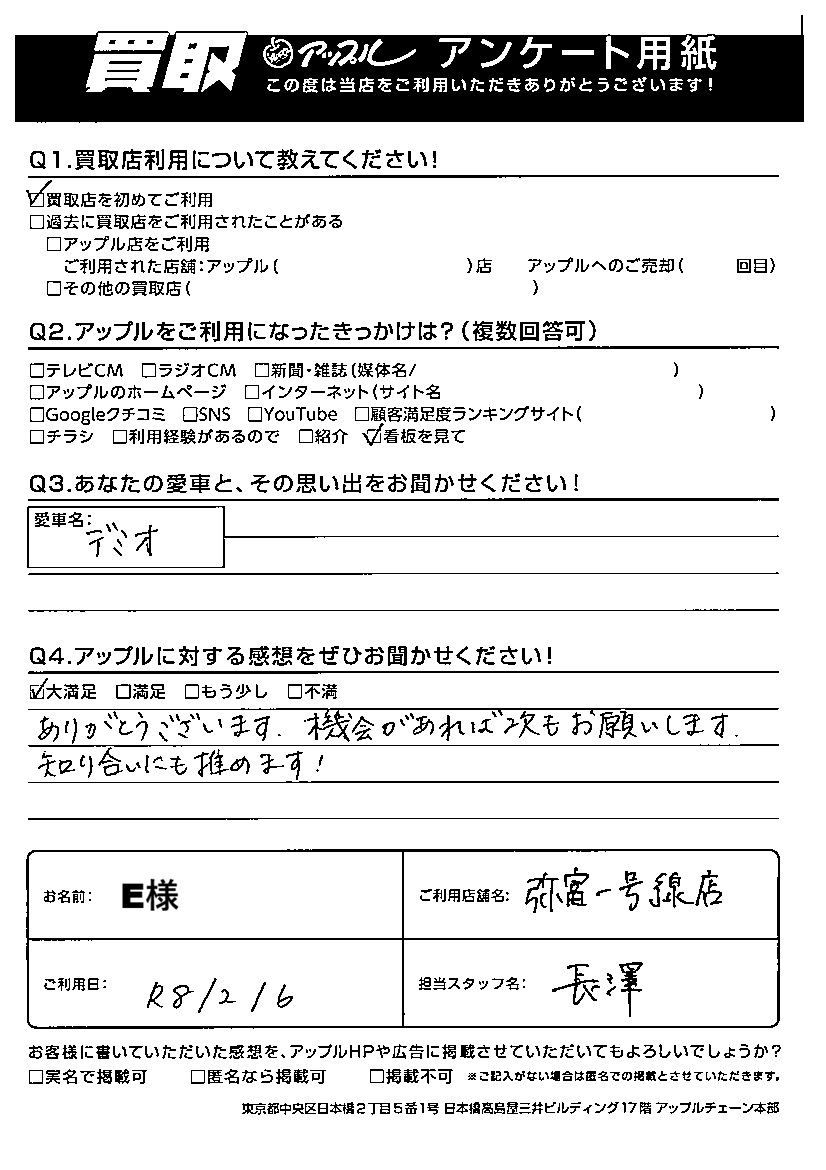 買取 アップル アンケート用紙
この度は当店をご利用いただきありがとうございます!
Q1.買取店利用について教えてください!
☑買取店を初めてご利用
□過去に買取店をご利用されたことがある
□アップル店をご利用
ご利用された店舗:アップル( )店 アップルへのご売却( 回目)
□その他の買取店( )
Q2.アップルをご利用になったきっかけは?(複数回答可)
□テレビCM □ラジオCM □新聞・雑誌(媒体名/ )
□アップルのホームページ □インターネット(サイト名 )
□Googleクチコミ □SNS □YouTube □顧客満足度ランキングサイト( )
□チラシ □利用経験があるので □紹介 ☑看板を見て
Q3.あなたの愛車と、その思い出をお聞かせください!
愛車名:
デミオ
Q4.アップルに対する感想をぜひお聞かせください!
☑大満足 □満足 □もう少し □不満
ありがとうございます。機会があれば次もお願いします。
知り合いにも推めます!
お名前: E様 ご利用店舗名: 弥富一号線店
ご利用日: R8/2/6 担当スタッフ名: 長澤
お客様に書いていただいた感想を、アップルHPや広告に掲載させていただいてもよろしいでしょうか?
□実名で掲載可 □匿名なら掲載可 □掲載不可 ※ご記入がない場合は匿名での掲載とさせていただきます。
東京都中央区日本橋2丁目5番1号 日本橋髙島屋三井ビルディング17階 アップルチェーン本部